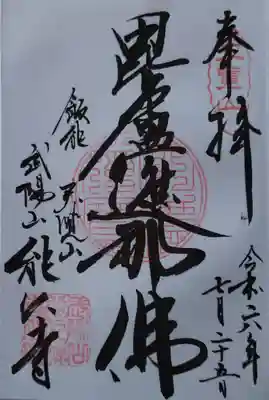 奉拝
令和六年
七月二十五日
毘盧遮那佛
飯能 天覧山
武陽山 能仁寺